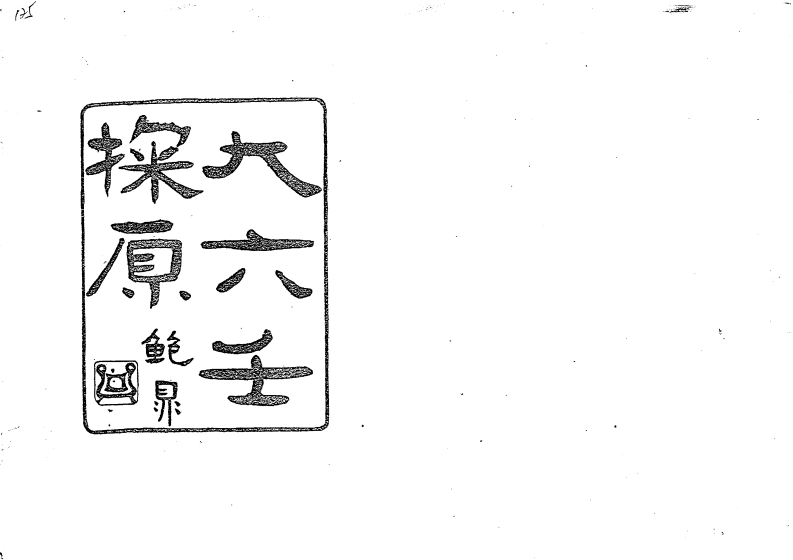 125
大六壬
探原
鲍鼎